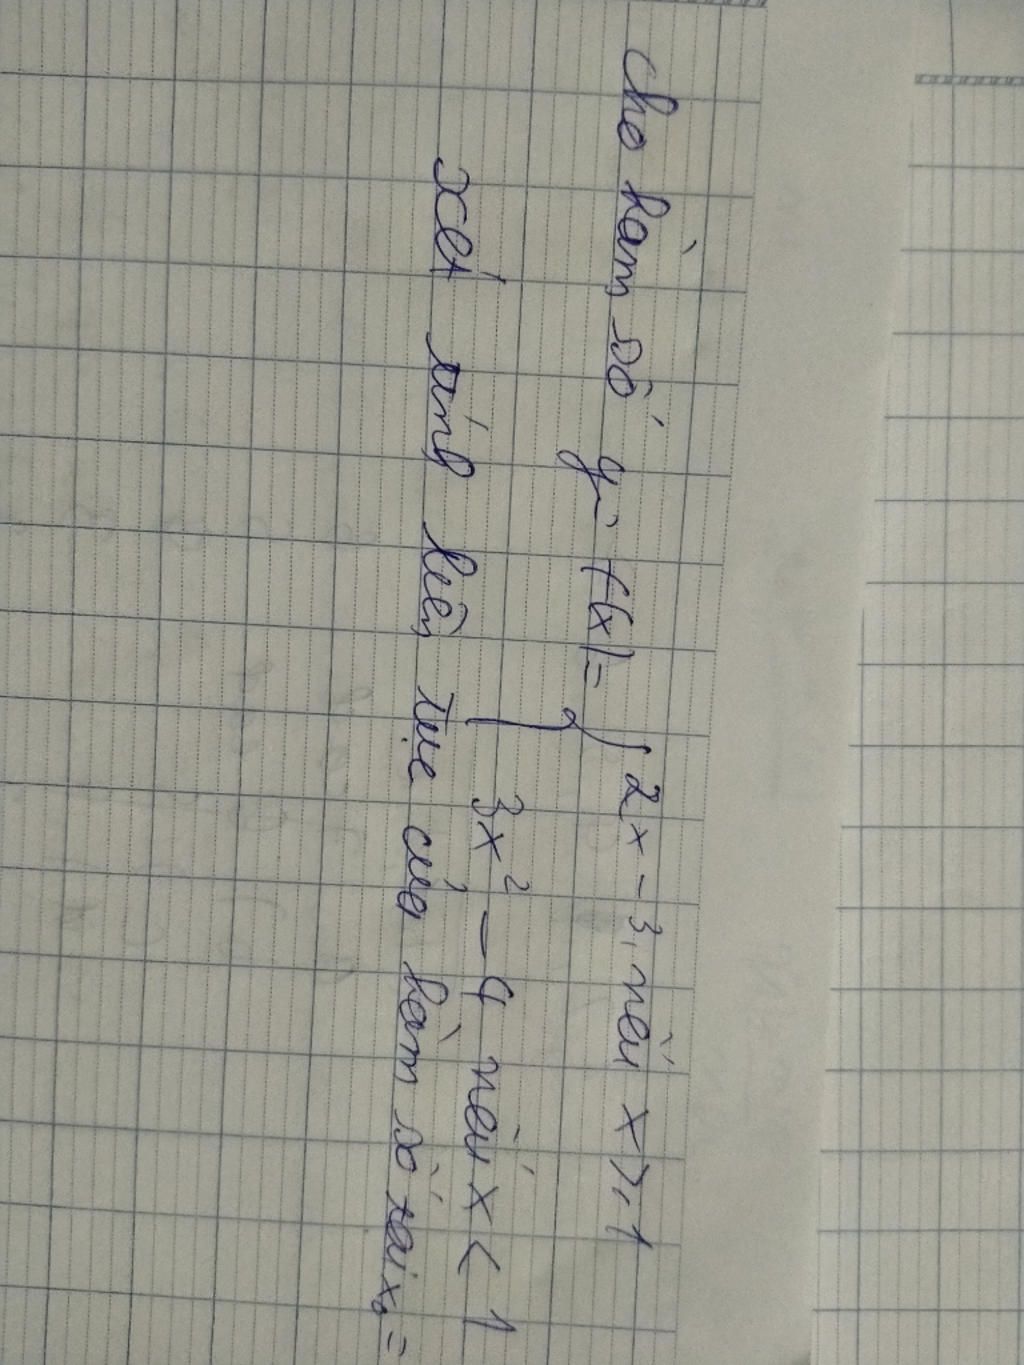 cho hàm số y = f(x) = { 2x - 3, nếu x ≥ 1
3x² - 4 nếu x < 1
xét tính liên tục của hàm số tại x₀ =